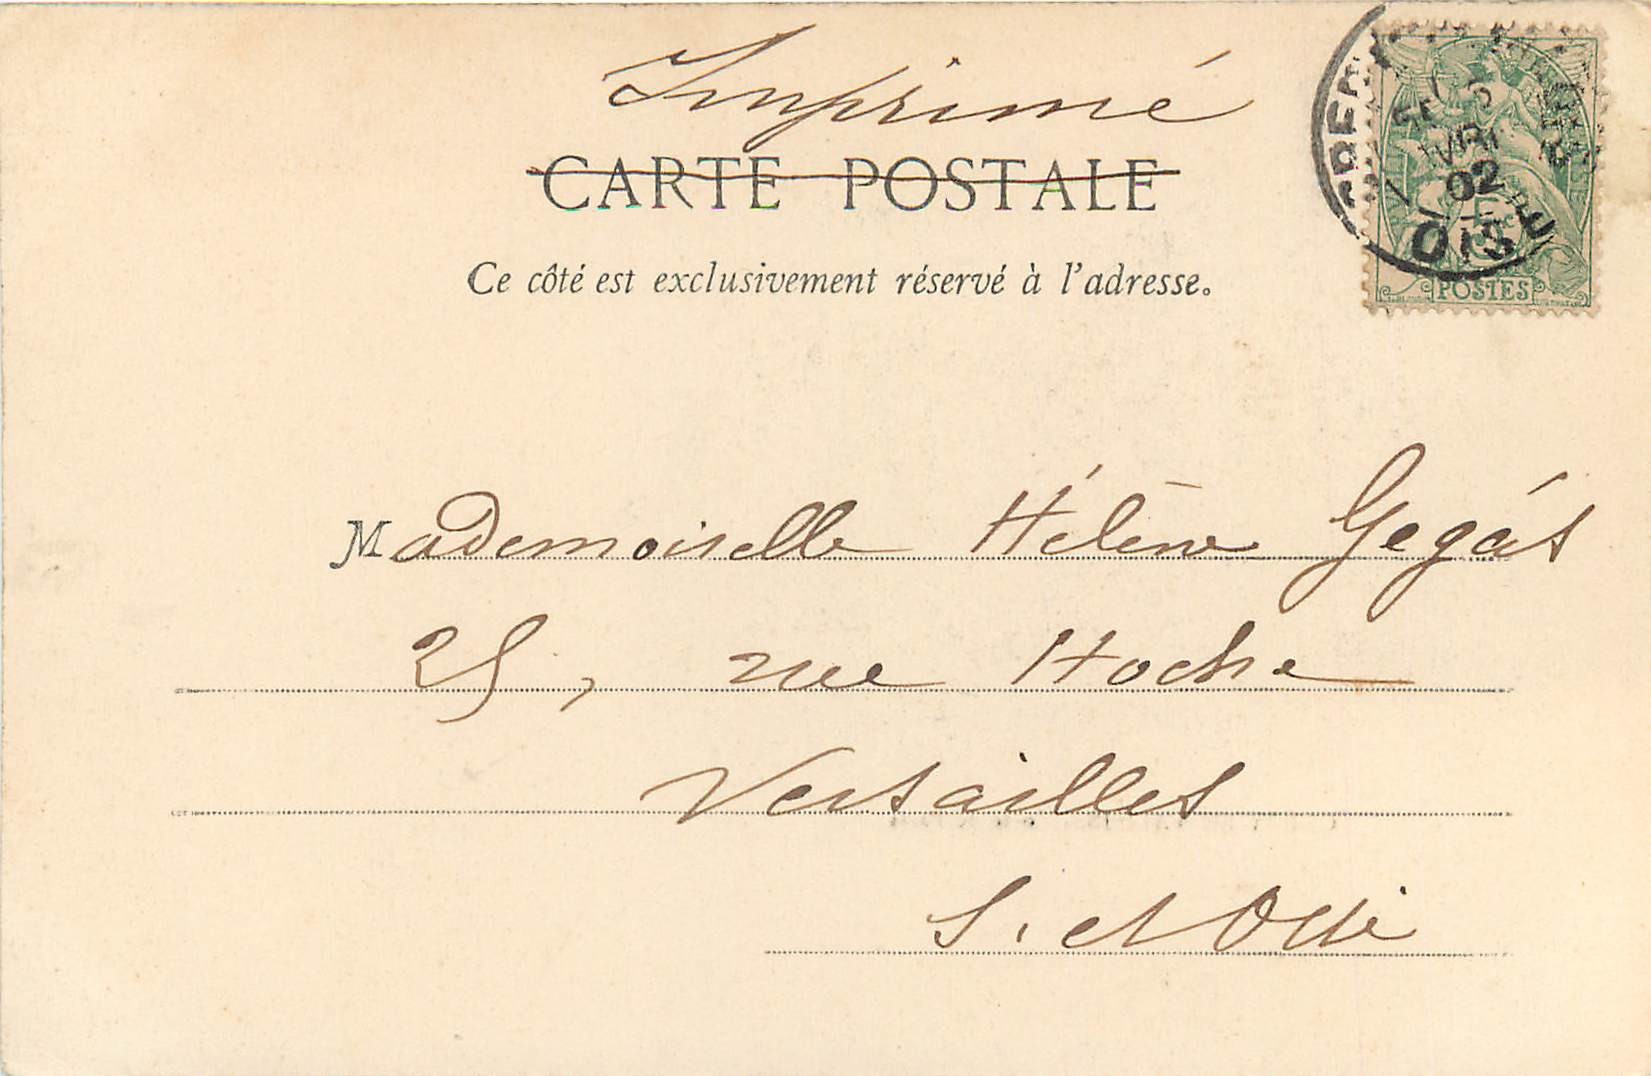 Imprimé
CARTE POSTALE
Ce côté est exclusivement réservé à l'adresse.
02
OISE
POSTES
Mademoiselle Hélène Gegás
25, rue Hoche
Versailles
S. et Oise